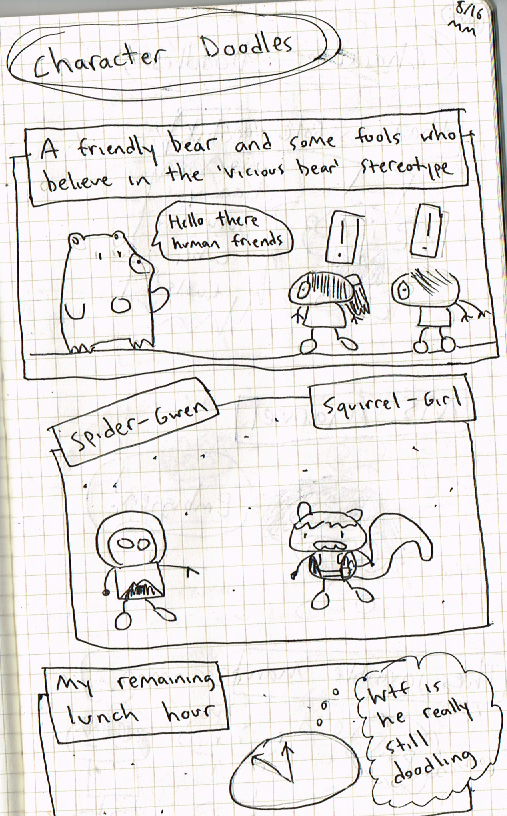 8/16
mm
Character Doodles
A friendly bear and some fools who
believe in the 'vicious bear' stereotype
Hello there
human friends
!
!
Spider-Gwen
Squirrel-Girl
My remaining
lunch hour
wtf is
he really
still
doodling